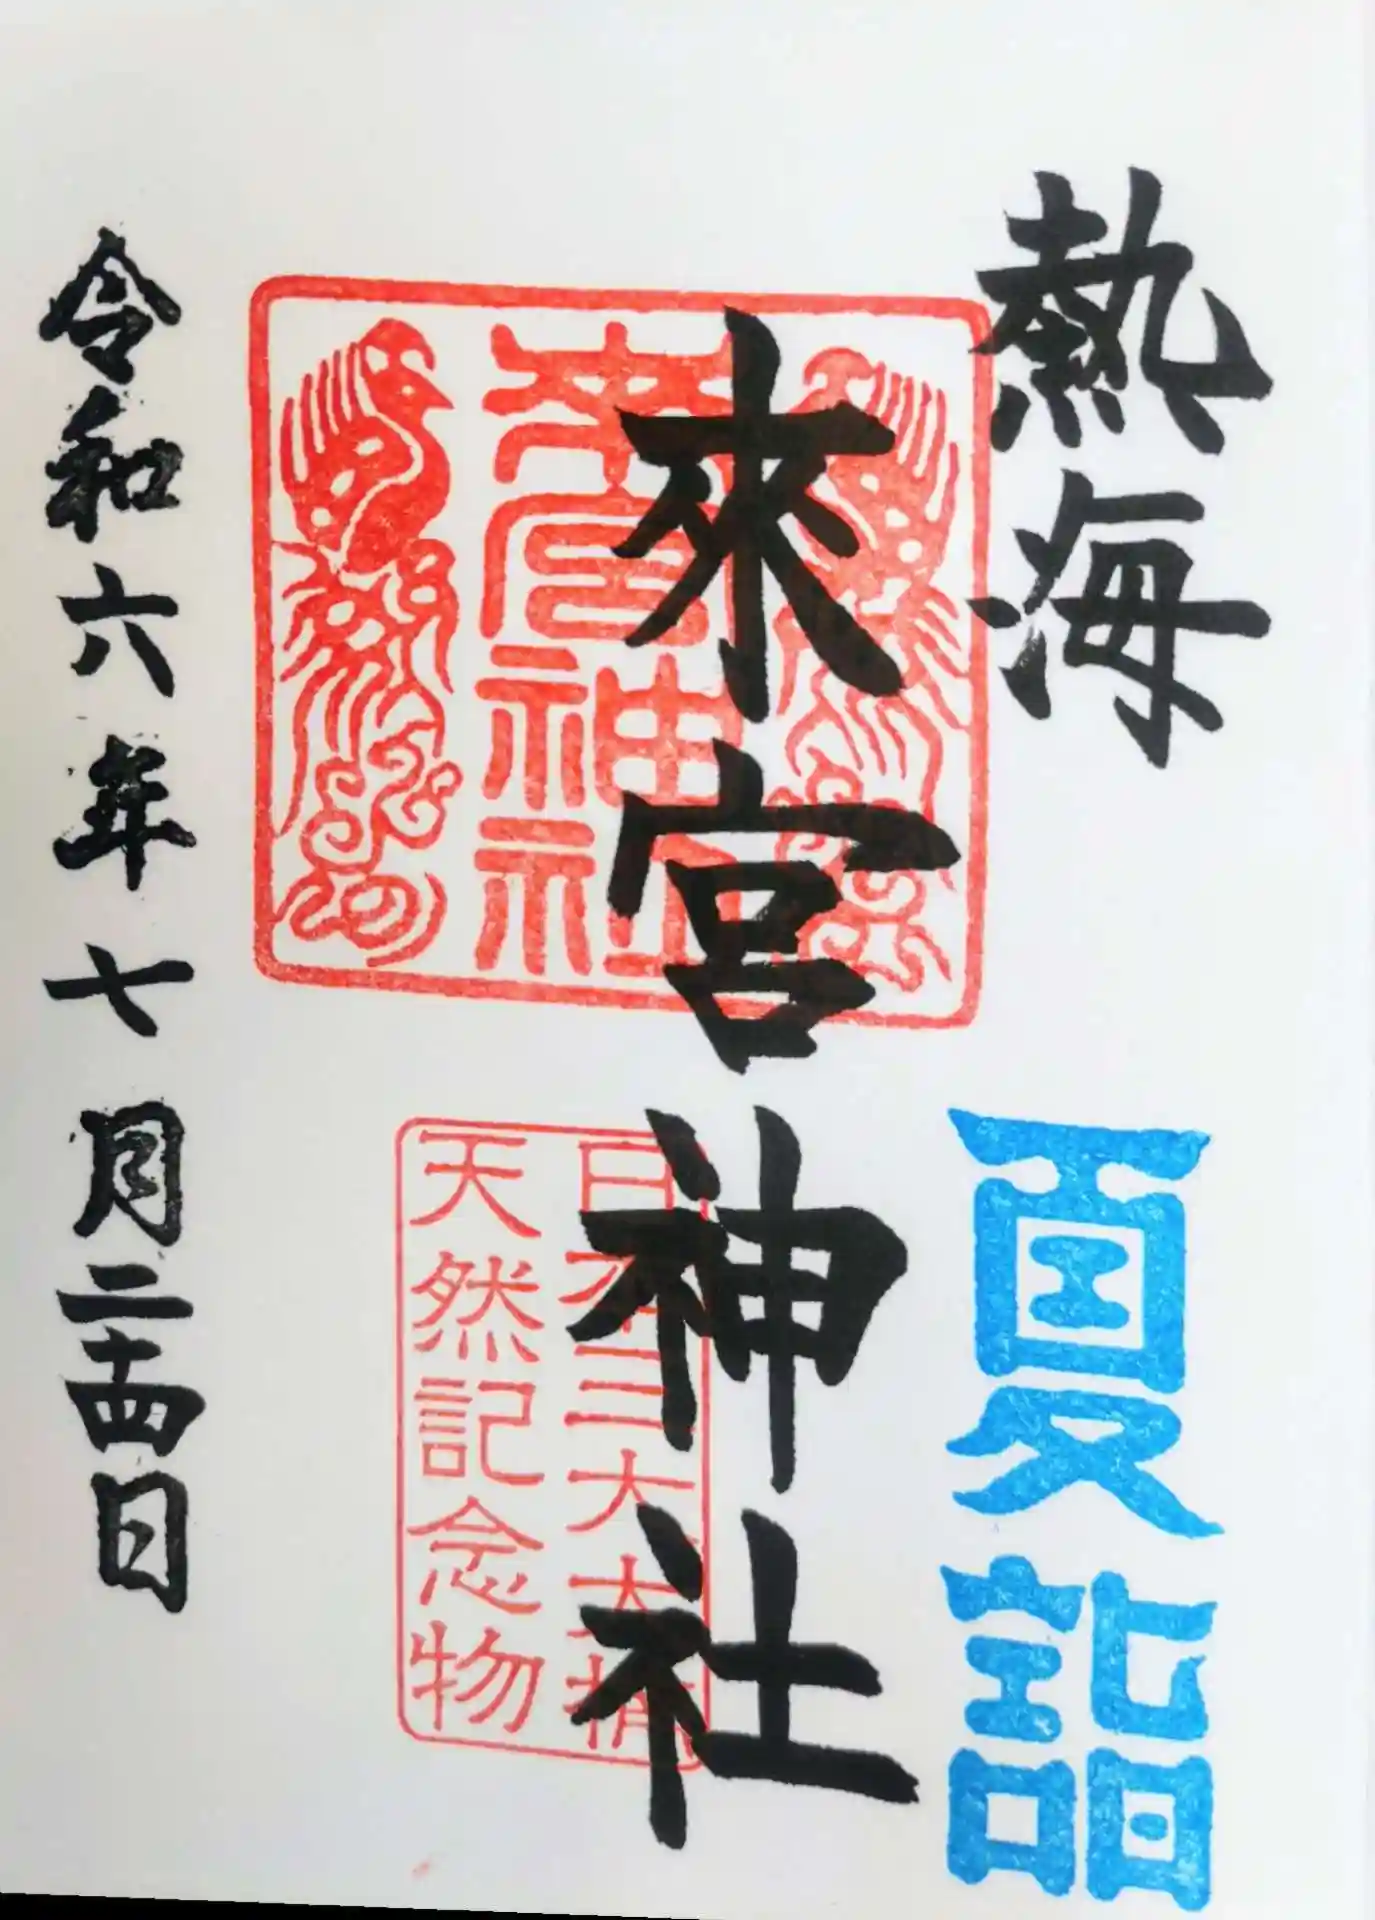 熱海
夏詣
來宮神社
來宮神社
日本三大大楠
天然記念物
令和六年七月二十四日